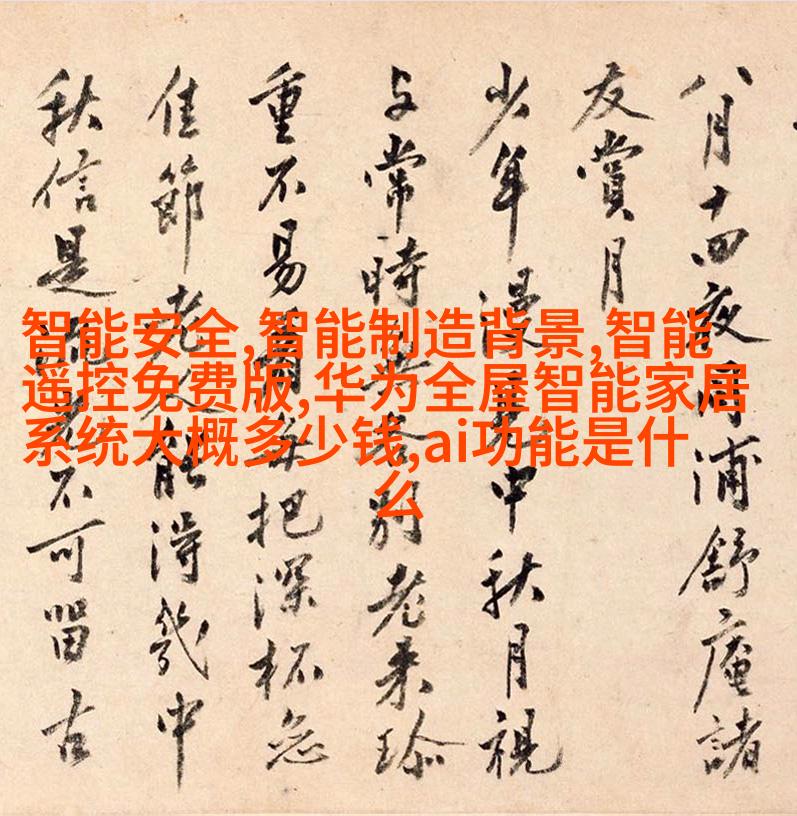 八月十四夜浦舒庵諸
友賞月
少年漫中秋月視
与常時各別老来珍
重不易把深杯
佳節老人能得幾中
秋信是不可留古
智能安全,智能制造背景,智能
遥控免费版,华为全屋智能家居
系统大概多少钱,ai功能是什
么